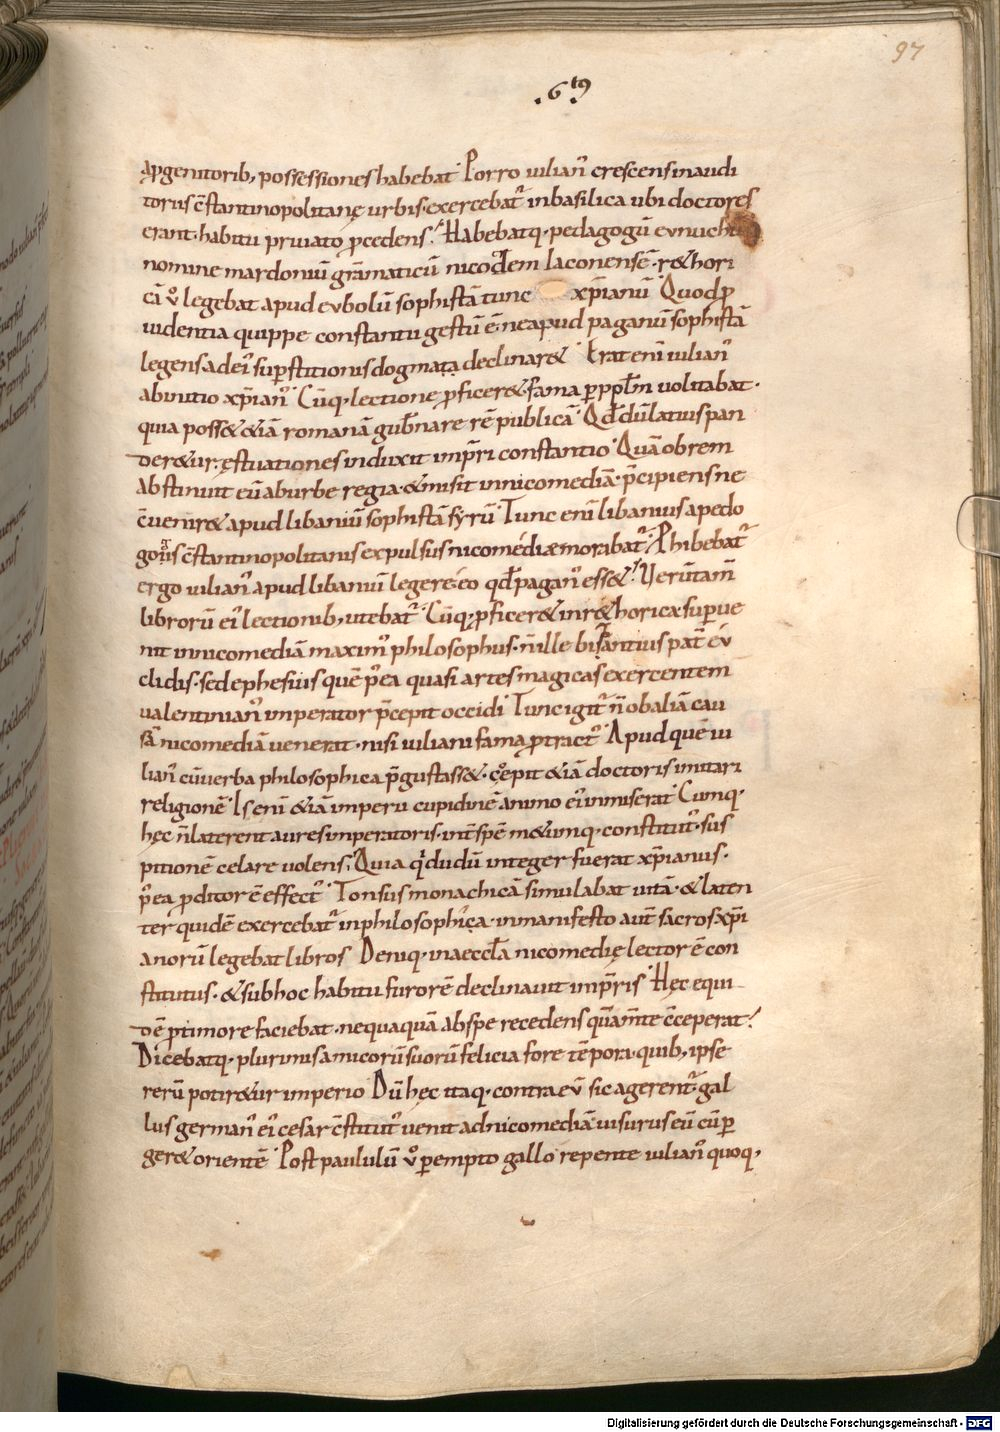 97
.6.tꝰ
a ꝓgenitorib; possessiones habebat. Porro iulianꝰ crescens in audi
toriis c̄stantinopolitanę urbis. exercebat᷑ in basilica ubi doctores
erant. habitu priuato ꝓcedens. Habebatq; pedagogū eunuchū
nomine mardoniū grāmaticū nicoclem laconensē. r&hori
cā ů legebat apud eubolū sophistā tunc xp̄ianū. Quod ꝓ
uidentia quippe constantii gestū ē. ne apud paganū sophistā
legens ad eiꝰ suꝑstitionis dogmata declinar&. Erat enī iulianꝰ
ab initio xp̄ianꝰ. Cūq; lectione ꝓficer&. fama ꝑ pplm̄ uolitabat.
quia poss& &iā romanā gub̄nare rē publicā. Qd̄ dū latius pan
der&ur. ęstuationes induxit imp̄ri constantio. Quā obrem
abstinuit eū ab urbe regia. & misit in nicomediā. p̄cipiens ne
c̄uenir& apud libaniū sophistā syrū. Tunc enī libanius a pedo
gogis c̄stantinopolitanis expulsus nicomediæ morabat᷑. Phibebat᷑
ergo iulianꝰ apud libaniū legere. eo qd̄ paganꝰ ess&. Uerūtam̄
librorū eiꝰ lectionib; utebat᷑. Cūq; ꝓficer& in r&horica suꝑue
nit in nicomediā maximꝰ philosophus. n̄ ille bisantius pat̄ eu
clidis. sed ephesius quē p̄ea quasi artes magicas exercentem
ualentinianꝰ imperator p̄cepit occidi. Tunc igit᷑ n̄ ob aliā cau
sā nicomediā uenerat. nisi iuliani fama ꝓtractꝰ. Apud quē iu
lianꝰ cū uerba philosophica p̄gustass&. cępit &iā doctoris imitari
religionē. Is enī &iā imperii cupidinē animo eiꝰ inmiserat. Cumq;
hęc n̄ laterent aures imperatoris. int̄ spē m&ūq; constitutꝰ. sus
pitionē celare uolens. Quia q̇ dudū integer fuerat xp̄ianus.
p̄ea ꝓditor ē effectꝰ. Tonsus monachicā simulabat uitā. & laten
ter quidē exercebat᷑ in philosophica. in manifesto aut̄ sacros xp̄i
anorū legebat libros. Deniq; in aeccl̄a nicomedię lector ē con
stitutus. & sub hoc habitu furorē declinauit imp̄ris. Hęc equi
dē ꝓ timore faciebat. nequaquā ab spe recedens quā m̄te c̄ceperat.
Dicebatq; plurimis amicorū suorū felicia fore tēpora. quib; ipse
rerū potir&ur imperio. Dū hęc itaq; contra eū sic agerent᷑. gal
lus germanꝰ eiꝰ cesar c̄stitutꝰ uenit ad nicomediā uisurus eū cū ꝑ
ger& orientē. Post paululū ů ꝑempto gallo repente iulianꝰ quoq;
Digitalisierung gefördert durch die Deutsche Forschungsgemeinschaft - DFG